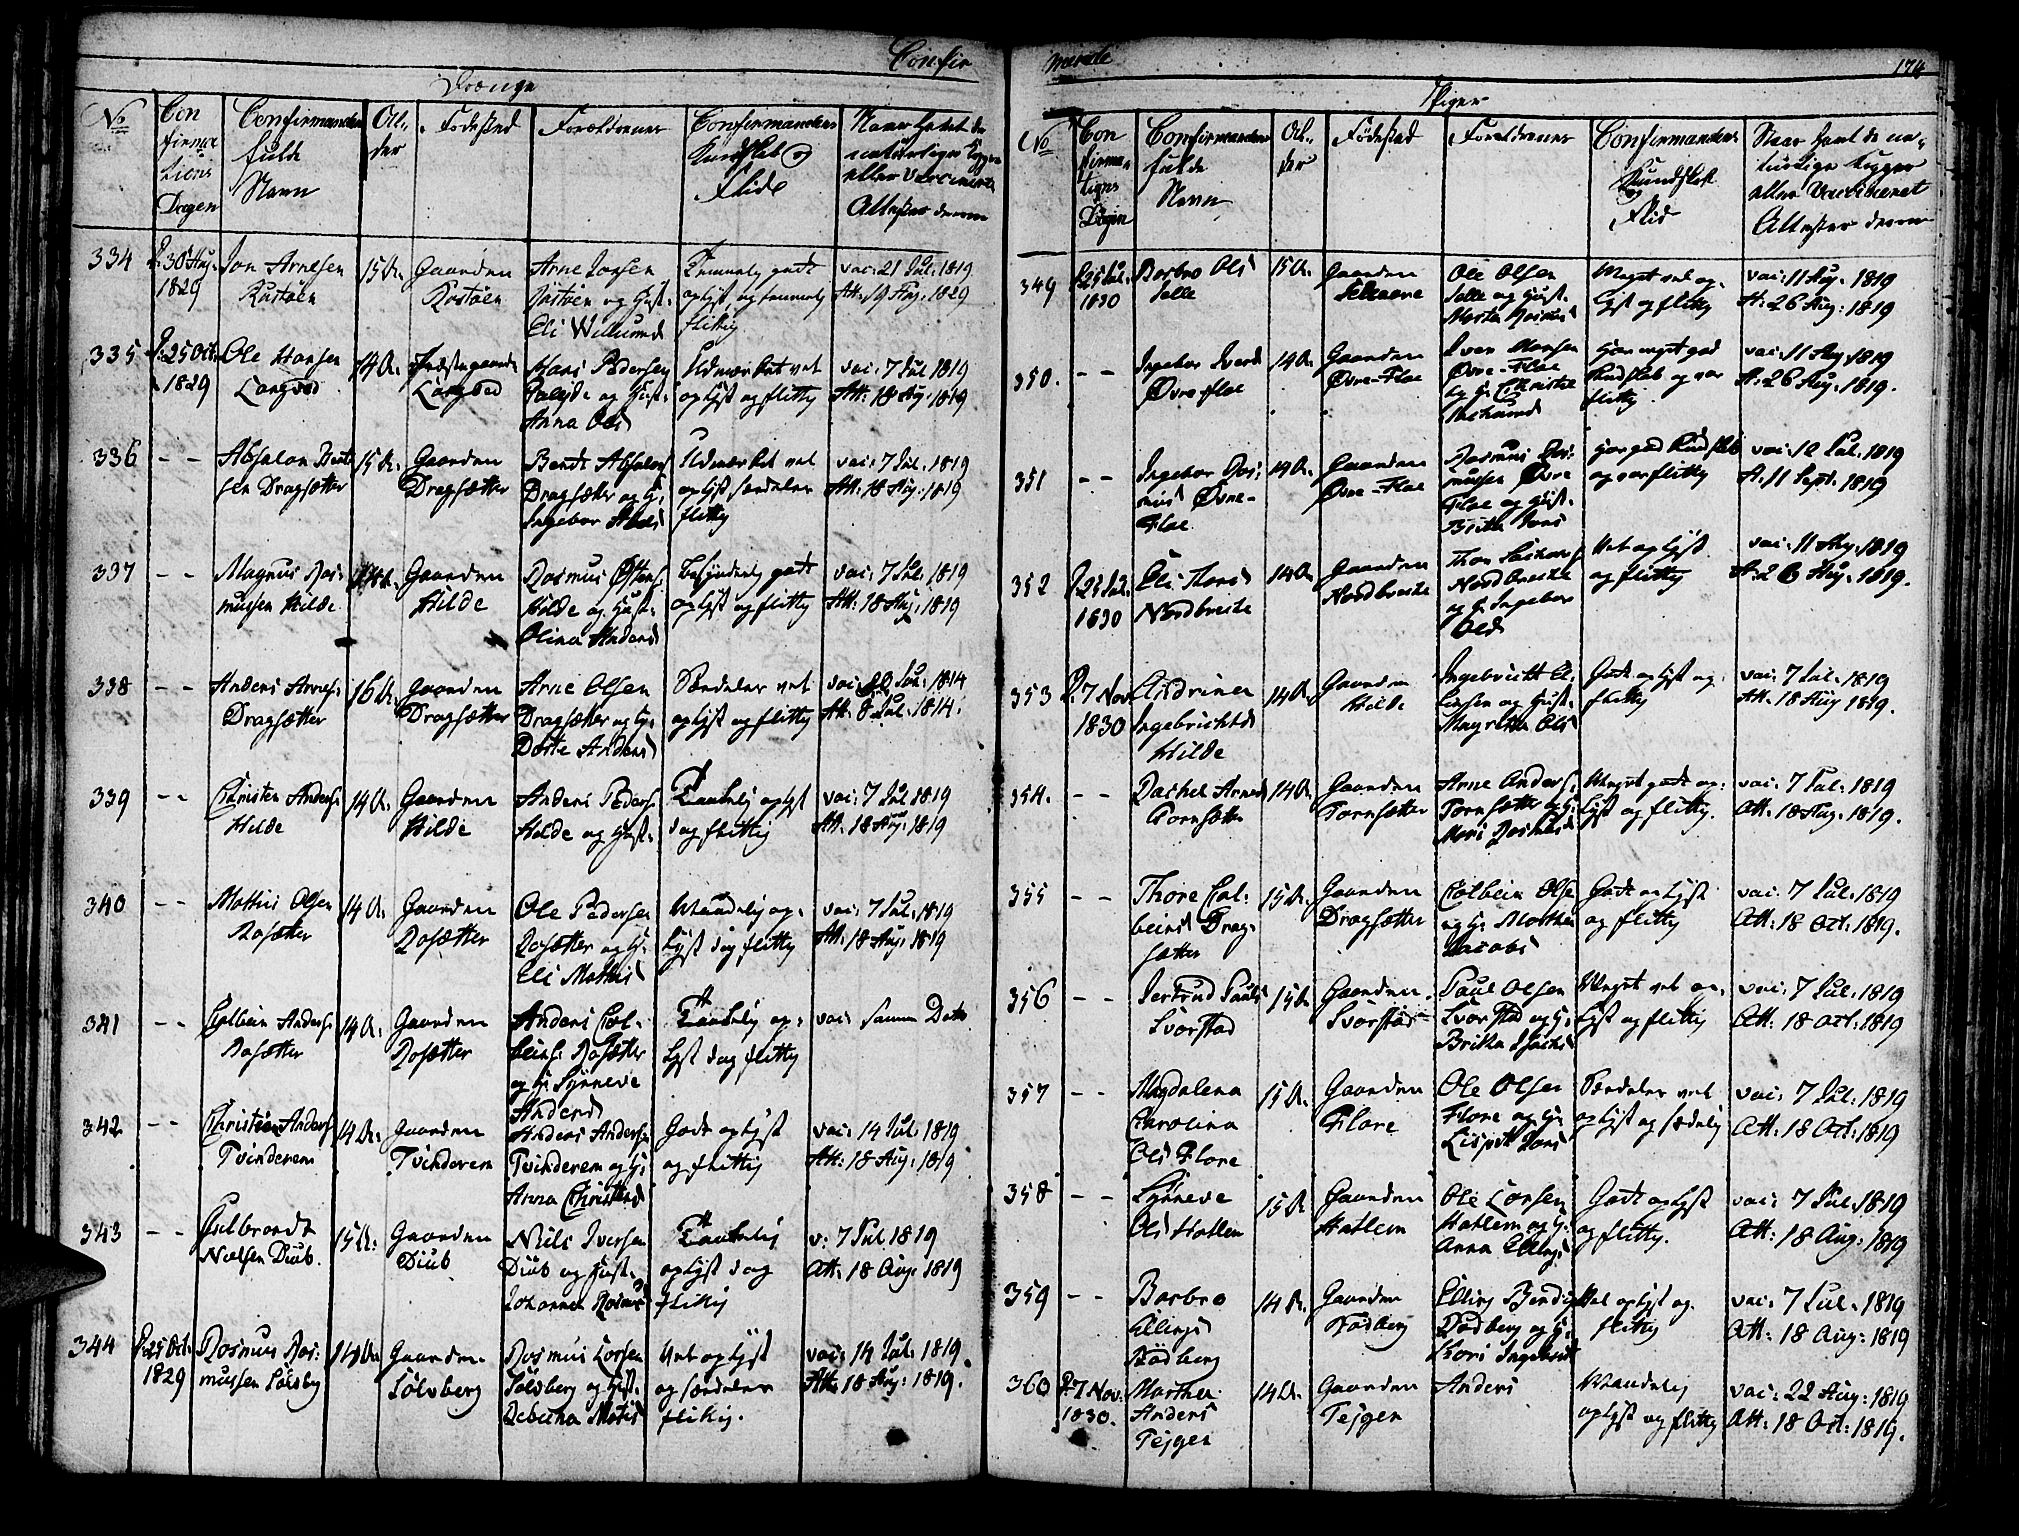 Confir
Drenge
No
Con
firma
tions
Dagen
Confirmandens
fulde
Navn
Al-
der
Fødested
Forældrenes
Confirmandens
Kundskab og
Flid
Naar havt de
naturlige Kopper
eller vaccineret
Attester derom
334
D. 30 Aug.
1829
Jon Arnesen
Rustøen
15 A.
Gaarden
Rostøen
Arne Jonsen
Røstøen og Hust.
Eli Willumsd
Temmelig godt
oplyst og temmelig
flittig
vac: 21 Jul: 1819
Att: 19 Aug: 1829
335
D. 25 Oct.
1829
Ole Hansen
Langved
14 A.
Langved
Hans Pedersen
og Hust.
Anna Olsd
Udmærket vel
oplyst og flittig
vac: 7 Jul 1819
Att: 18 Aug: 1819
336
- -
Absalon Bent
sen Dragsætter
15 A.
Gaarden
Dragsætter
Bendt Absalons.
Dragsætter og H:
Ingebor
Udmærket vel
oplyst særdeles
flittig
vac: 7 Jul: 1819
Att: 18 Aug: 1819
337
- -
Magnus Ras-
mussen Hilde
14 A.
Gaarden
Hilde
Rasmus Østens.
Hilde og Hust.
Olina Andersd
Besynderlig godt
oplyst og flittig
vac: 7 Jul: 1819
Att: 18 Aug: 1819
338
- -
Anders Arnes.
Dragsætter
16 A.
Gaarden
Dragsætter
Arne Olsen
Dragsætter og H:
Dorte Andersd
Særdeles vel
oplyst og flittig
vac: Jul: 1814
Att: 8 Jul: 1814.
339
- -
Christen Anders.
Hilde
14 A.
Gaarden
Hilde
Anders Peders.
Hilde og Hust.
Taalelig oplyst
og flittig
vac: 7 Jul 1819
Att: 18 Aug: 1819
340
- -
Mathis Olsen
Rosætter
14 A.
Gaarden
Rosætter
Ole Pedersen
Rosætter og H:
Eli Mathisd
Maadelig op-
lyst og flittig
vac: 7 Jul: 1819
Att: 18 Aug: 1819
341
- -
Colbein Anders.
Rosætter
14 A.
Gaarden
Rosætter
Anders Col-
beins. Rosætter
og H: Synneve
Andersd
Taalelig op-
lyst og flittig
vac: samme Dato
342
- -
Christen Anders.
Tvinderem
14 A.
Gaarden
Tvinderem
Anders Anders.
Tvinderem og H:
Anna Christensd
Godt oplyst
og flittig
vac: 14 Jul: 1819
Att: 18 Aug: 1819
343
- -
Gulbrandt
Nielsen Diub.
15 A.
Gaarden
Diub
Niels Iversen
Diub og Hust.
Johanne Rasmusd
Taalelig
oplyst og
flittig
v: 7 Jul 1819
Att: 18 Aug: 1819
344
D. 25 Oct.
1829
Rasmus Ras-
mussen Sølvberg
14 A.
Gaarden
Sølvberg
Rasmus Larsen
Sølvberg og Hust.
Rebecka Matisd
Vel oplyst
og særdeles
flittig.
vac: 14 Jul: 1819.
Att: 18 Aug: 1819.
merede
174
Piger
No
Con
firma-
tions
Dagen
Confirmandens
fulde
Navn
Al-
der
Fødested
Forældrenes
Confirmandens
Kundskab
Flid
Naar havt de na-
turlige Kopper
eller Vaccineret
Attester derom
349
D. 25 Jul.
1830
Barbro Olsd
Selle
15 A.
Gaarden
Ole Olsen
Selle og Hust.
Marta Rasmusd
Meget vel op-
lyst og flittig
vac: 11 Aug: 1819
A: 26 Aug: 1819
350.
- -
Ingebor Iversd
Øvre-Floe
14 A.
Gaarden
Øvre-Floe
Iver Monsen
Øvre-Floe
og H: Christie
Har meget god
Kundskab og var
flittig
vac: 11 Aug: 1819
A: 26 Aug: 1819.
351
- -
Ingebor Ras-
musd Øvre-
Floe
14 A.
Gaarden
Øvre-Floe
Rasmus Ras-
mussen Øvre
Floe og Hust.
Britha Jonsd
Har god Kundskab
og var flittig
vac: 12 Jul: 1819
A: 11 Sept: 1819
352
D. 25 Jul.
1830
Eli Thorsd
Nordbreche
14 A.
Gaarden
Nordbreche
Thor
Nordbreche
og H: Ingebor
Olsd
Vel oplyst
og flittig
vac: 11 Aug: 1819
A: 26 Aug: 1819.
353
D. 7 Nov.
1830
Andrina
Ingebrichtsd
Hilde
14 A.
Gaarden
Hilde
Ingebricht El-
lingsen og Hust.
Magretha Olsd
Godt oplyst og
flittig
vac: 7 Jul: 1819
Att: 18 Aug 1819.
354.
- -
Rachel Arnesd
Tornsætter
14 A.
Gaarden
Tornsætter
Arne Anders.
Tornsætter og H:
Mari
Meget godt op-
lyst og flittig.
vac: 7 Jul: 1819
Att: 18 Aug: 1819.
355
- -
Thore Col-
beinsd Drag-
sætter
15 A.
Gaarden
Dragsætter
Colbein Olsen
og H: Marthe
Jacobsd
Godt oplyst
og flittig
vac: 7 Jul: 1819
Att: 18 Oct: 1819.
356
- -
Jertrud Paulsd
Svorstad
15 A.
Gaarden
Svorstad
Paul Olsen
Svorstad og H:
Britha
Meget vel op-
lyst og flittig
vac: 7 Jul: 1819
Att: 18 Oct: 1819
357
- -
Magdalena
Carolina
Olsd Flore
15 A.
Gaarden
Flore
Ole Olsen
Flore og H:
Lisbet Jonsd
Særdeles vel
oplyst og sædelig
vac: 7 Jul: 1819
Att: 18 Oct: 1819
358
- -
Synneve
Olsd Hatlem
15 A
Gaarden
Hatlem
Ole Larsen
Hatlem og H:
Anna Ellingsd
Godt oplyst
og flittig.
vac: 7 Jul: 1819
Att: 18 Aug: 1819
359
- -
Barbro
Ellingsd
Rødberg
14 A.
Gaarden
Rødberg
Elling Bends.
Rødberg og H:
Kari Ingebrigtsd
Vel oplyst og
flittig
vac: 7 Jul: 1819
Att: 18 Aug: 1819
360
D. 7 Nov.
1830.
Marthe
Andersd
Tejgen
14 A.
Gaarden
Tejgen
Anders
Maadelig
oplyst og flittig
vac: 22 Aug: 1819
Att: 18 Oct: 1819.